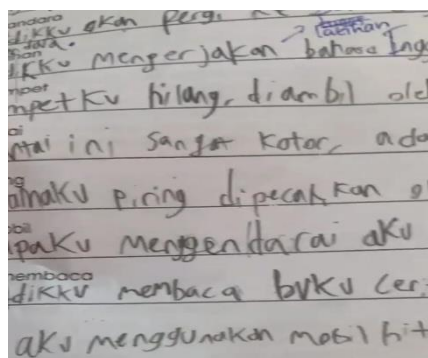 andara
dikku akan pergi
dara.
han
ikku mengerjakan latihan bahasa Ing
mpet
mpetku hilang, diambil ole
ai
ntai ini sangat kotor, ada
ng
amaku piring dipecahkan o
bil
ipaku menggendarai aku
nembaca
dikku membaca buku cer
aku menggunakan mobil hit